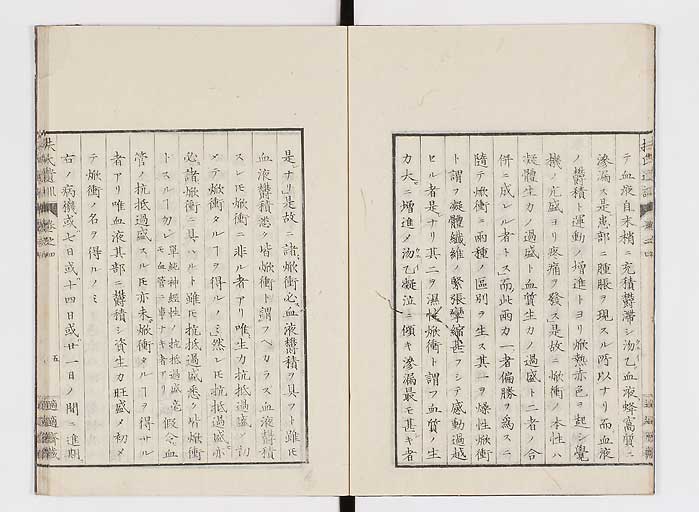 テ血液自末梢ニ充積鬱滞シ沕乙血液蜂窩質ニ
滲漏ス是患部ニ腫脹ヲ現スル所以ナリ而血液
ノ鬱積ト運動ノ増進トヨリ焮熱赤色ヲ起シ覺
機ノ亢盛ヨリ疼痛ヲ發ス是故ニ焮衝ノ本性ハ
凝體生力ノ過盛ト血質生力ノ過盛ト二者ノ合
併ニ成レル者トス而此兩力一者偏勝ヲ為スニ
隨テ焮衝ニ兩種ノ區別ヲ生ス其一ヲ燥性焮衝
ト謂フ凝體纖維ノ緊張攣縮甚フシテ感動過越
ヒル者是ナリ其二ヲ濕性焮衝ト謂フ血質ノ生
力大ニ増進ノ沕乙凝泣ニ傾キ滲漏最モ甚キ者
是ナリ是故ニ諸焮衝必血液鬱積ヲ具フト雖モ
血液鬱積悉ク皆焮衝ト謂フヘカラス血液鬱積
スレモ焮衝ニ非ル者アリ唯生力抵抗過盛ノ初
メテ焮衝タルヿヲ得ルノミ然レモ抗抵過盛亦
必諸焮衝ニ具ハルト雖モ抗抵過盛悉ク皆焮衝
トスルヿ勿レ 單純神經性ノ抗抵過盛毫モ血管ニ事ナキ者アリ 假令血
管ノ抗抵過盛スルモ亦未焮衝タルヿヲ得サル
者アリ唯血液其部ニ鬱積シ資生力旺盛メ初メ
テ焮衝ノ名ヲ得ルノミ
右ノ病機或七日或十四日或廿一日ノ間ニ進期
五